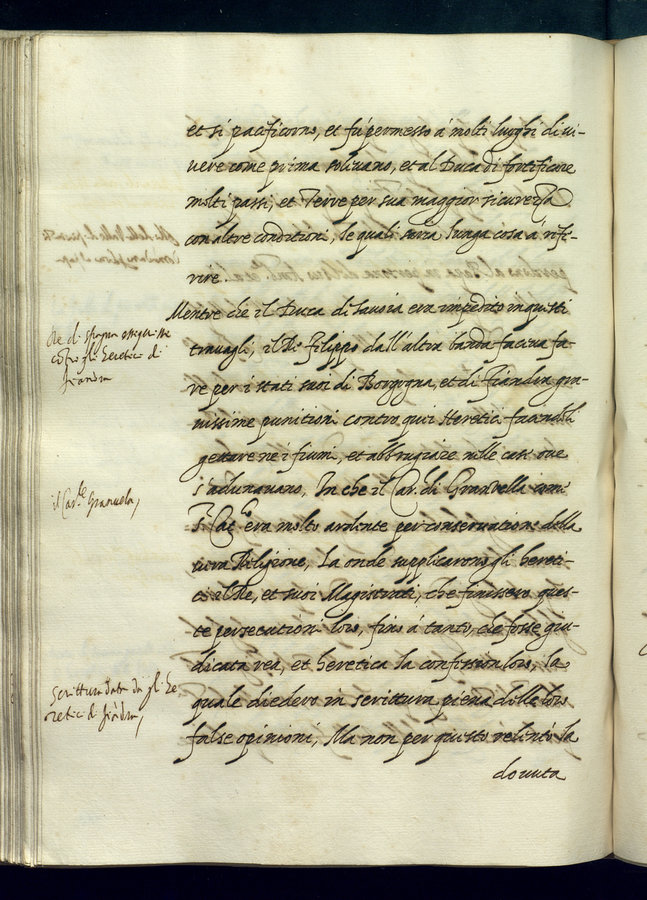 et si pacificorno, et fù permesso à molti luoghi di vi-
vere come prima solivano, et al Duca di fortificare
molti passi, et Terre per sua maggior sicurezza
con altre conditioni, le quali saria lunga cosa à rife-
rire.
Mentre che il Duca di Savoia era impedito in questi
travagli, il Re Filippo dall'altra banda faceva fa-
re per i stati suoi di Borgogna, et di Fiandra gra-
vissime punitioni contro quei Heretici facendoli
gettare ne i fiumi, et abbrugiare nelle case ove
s'adunavano, In che il Car. di Granvella
era molto ardente per conservatione della
vera Religione, La onde supplicarono gli hereti-
ci il Re, et suoi Magistrati, che finissero ques-
te persecutioni loro, fino à tanto, che fosse giu-
dicata rea, et heretica la confession loro, la
quale diedero in scrittura piena delle loro
false opinioni, Ma non per questo relentò la
dovuta
Re di spagna
contro gli heretici di
fiandra
il Car.le Granvela,
Scrittura data da gli he
retici di fiandra,